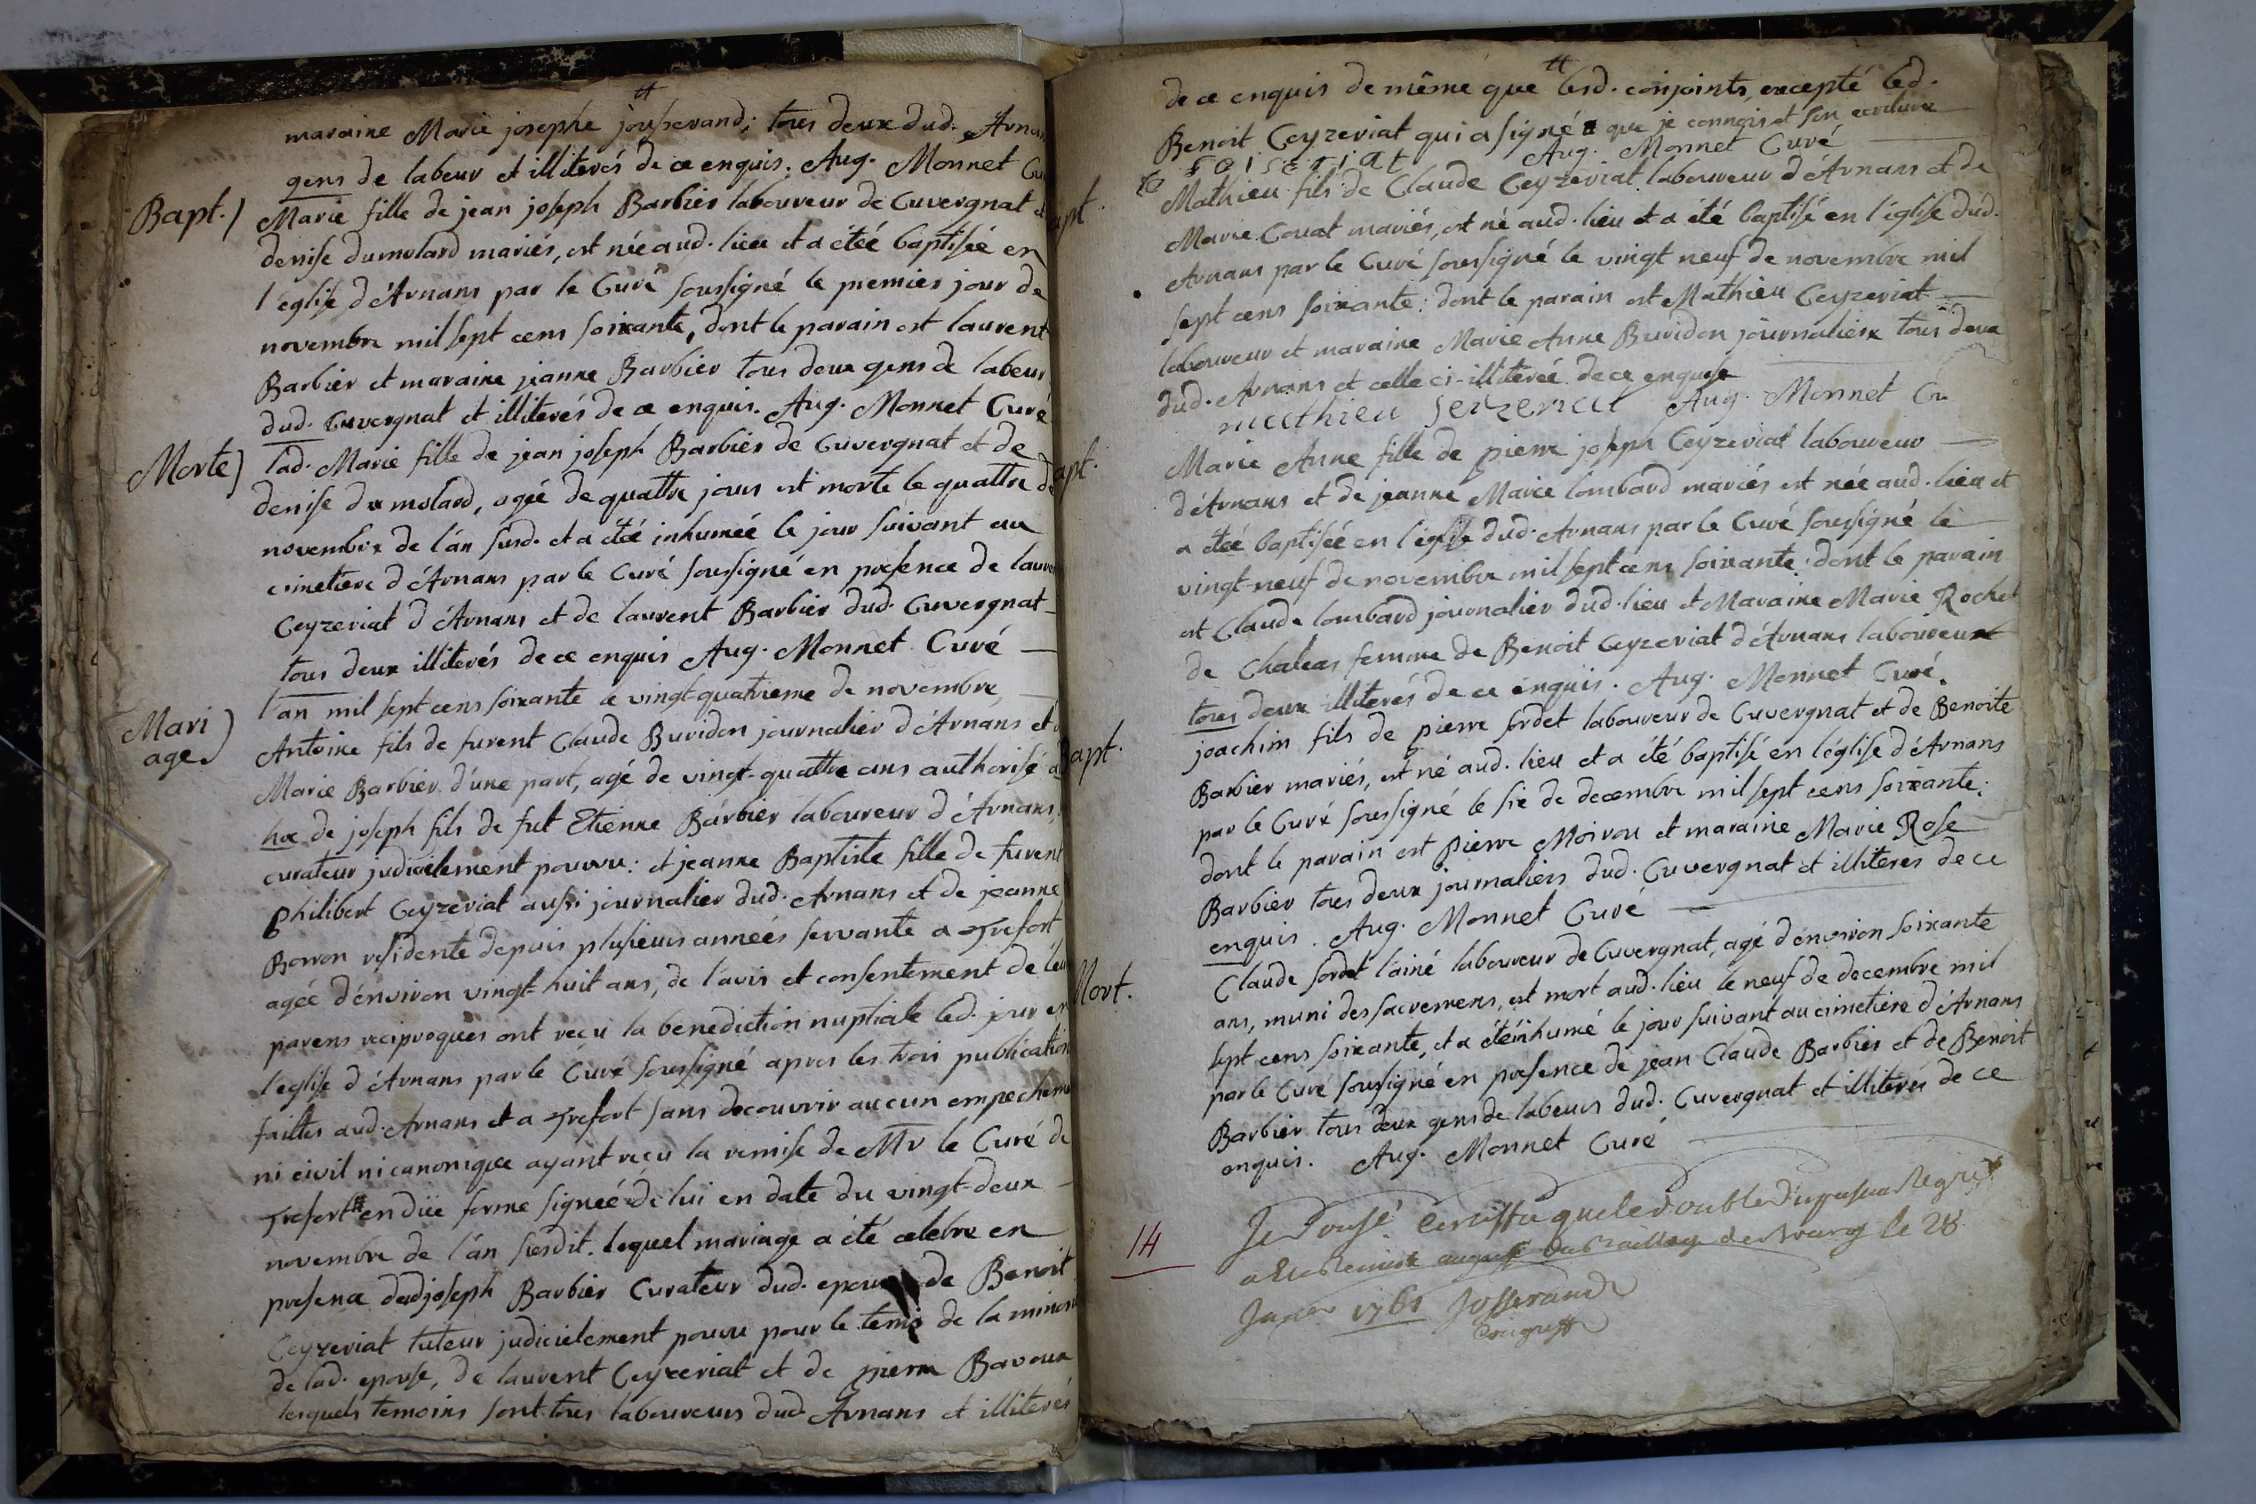 maraine Marie josephe jousserand; tous deux dud. Arnan
gens de labeur et illiterés de ce enquis. Aug. Monnet Cu
Bapt.) Marie fille de jean joseph Barbier laboureur de Cuvergnat et
denise dumolard mariés, est née aud. lieu et a étéé baptisée en
l'eglise d'Arnans par le Curé soussigné le premier jour de
novembre mil sept cens soixante, dont le parain est laurent
Barbier et maraine jeanne Barbier tous deux gens de labeur
dud. Cuvergnat et illiterés de ce enquis. Aug. Monnet Curé
Morte) lad. Marie fille de jean joseph Barbier de Cuvergnat et de
denise du molard, agée de quattre jours est morte le quattre de
novembre de l'an susd. et a étéé inhumée le jour suivant au
cimetiere d'Arnans par le Curé soussigné en presence de laure
Ceyzeriat d'Arnans et de laurent Barbier dud. Cuvergnat
tous deux illiterés de ce enquis Aug. Monnet Curé
Mari
age) l'an mil sept cens soixante le vingt-quatrieme de novembre
Antoine fils de furent Claude Buridon journalier d'Arnans et
Marie Barbier d'une part, agé de vingt-quattre ans authorisé a
hoc de joseph fils de fut Etienne Barbier laboureur d'Arnans,
curateur judicielement pourvu: et jeanne Baptiste fille de furent
Philibert Ceyzeriat aussi journalier dud. Arnans et de jeanne
Borron residente depuis plusieurs années servante a Trefort
agée d'environ vingt-huit ans, de l'avis et consentement de leur
parens reciproques ont reçu la benediction nuptiale led. jour en
l'eglise d'Arnans par le Curé soussigné apres les trois publication
faittes aud. Arnans et a Trefort sans decouvrir aucun empecheme
ni civil ni canonique ayant reçu la remise de Mr le Curé de
Trefort en düe forme signée de lui en date du vingt-deux
novembre de l'an susdit. lequel mariage a été celebré en
presence dud joseph Barbier Curateur dud. epoux de Benoit
Ceyzeriat tuteur judicielement pourvu pour le tems de la minori
de lad. epouse, de laurent Ceyzeriat et de pierre Bavoux
lesquels temoins sont tous laboureurs dud. Arnans et illiterés
de ce enquis de même que lesd. conjoints, excepté led.
Benoit Ceyzeriat qui a signé que je connois et son ecriture
Aug. Monnet Curé
apt. Mathieu fils de Claude Ceyzeriat laboureur d'Arnans et de
Marie Couat mariés, est né aud. lieu et a été baptisé en l'église dud.
Arnans par le Curé soussigné le vingt neuf de novembre mil
sept cens soixante: dont le parain est Mathieu Ceyzeriat
laboureur et maraine Marie Anne Buridon journaliere tous deux
dud. Arnans et celle ci illiterée de ce enquise
mathieu seizeriat Aug. Monnet Cu
apt. Marie Anne fille de pierre joseph Ceyzeriat laboureur
d'Arnans et de jeanne Marie lombard mariés est née aud. lieu et
a étéé baptisée en l'église dud. Arnans par le Curé soussigné le
vingt-neuf de novembre mil sept cens soixante: dont le parain
est Claude lombard journalier dud. lieu et Maraine Marie Rochet
de Chaleas femme de Benoit Ceyzeriat d'Arnans laboureur
tous deux illiterés de ce enquis. Aug. Monnet Curé.
Bapt. joachim fils de pierre sordet laboureur de Cuvergnat et de Benoite
Barbier mariés, est né aud. lieu et a été baptisé en l'église d'Arnans
par le Curé soussigné le six de decembre mil sept cens soixante;
dont le parain est pierre Moirou et maraine Marie Rose
Barbier tous deux journaliers dud. Cuvergnat et illiteres de ce
enquis. Aug. Monnet Curé
Mort. Claude sordet l'ainé laboureur de Cuvergnat, agé d'environ soixante
ans, muni des sacremens, est mort aud. lieu le neuf de decembre mil
sept cens soixante, et a été inhumé le jour suivant au cimetiere d'Arnans
par le Curé soussigné en presence de jean Claude Barbier et de Benoit
Barbier tous deux gens de labeurs dud. Cuvergnat et illiterés de ce
enquis. Aug. Monnet Curé
14
que le double du
a Bourg le 28
1761 Josserand